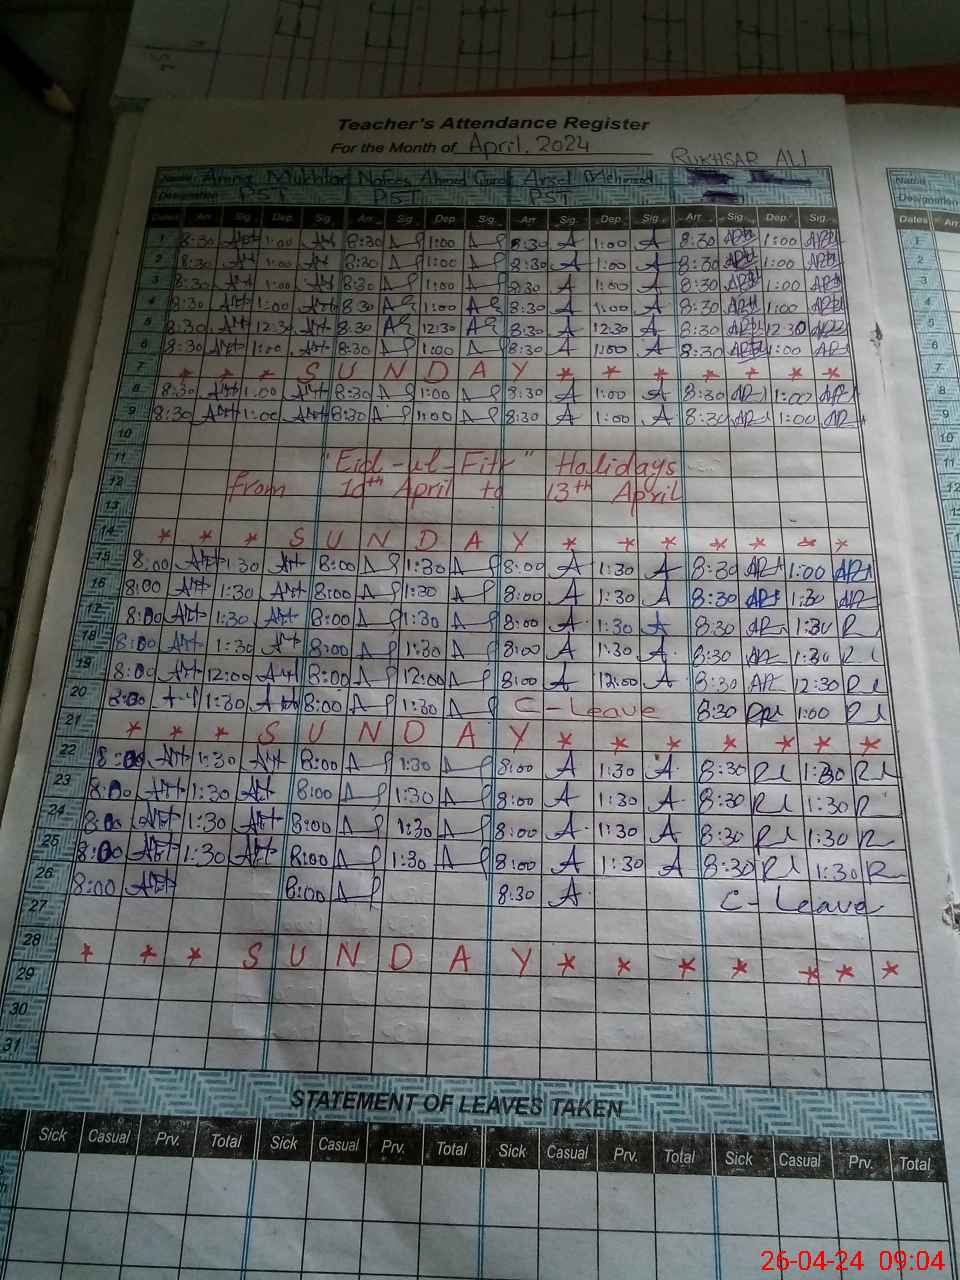 Teacher's Attendance Register
For the Month of April, 2024
RUKHSAR ALI
Name Amna Mukhtar Nafees Ahmed Arsal Mehmood
Designation PST PST PST
Dates Arr. Sig. Dep. Sig. Arr. Sig. Dep. Sig. Arr. Sig. Dep. Sig. Arr. Sig. Dep. Sig.
1 8:30 1:00 8:30 1:00 8:30 A 1:00 A 8:30 1:00
2 8:30 1:00 8:30 1:00 8:30 A 1:00 A 8:30 1:00
3 8:30 1:00 8:30 1:00 8:30 A 1:00 A 8:30 1:00
4 8:30 1:00 8:30 1:00 8:30 A 1:00 A 8:30 1:00
5 8:30 12:30 8:30 12:30 8:30 A 12:30 A 8:30 12:30
6 8:30 1:00 8:30 1:00 8:30 A 1:00 A 8:30 1:00
7 * * * S U N D A Y * * * * * * *
8 8:30 1:00 8:30 1:00 8:30 A 1:00 A 8:30 1:00
9 8:30 1:00 8:30 1:00 8:30 A 1:00 A 8:30 1:00
10
11 "Eid-ul-Fitr" Halidays
12 from 10th April to 13th April
13
14 * * * S U N D A Y * * * * * * *
15 8:00 1:30 8:00 1:30 8:00 A 1:30 A 8:30 1:00
16 8:00 1:30 8:00 1:30 8:00 A 1:30 A 8:30 1:30
17 8:00 1:30 8:00 1:30 8:00 A 1:30 A 8:30 1:30
18 8:00 1:30 8:00 1:30 8:00 A 1:30 A 8:30 1:30
19 8:00 12:00 8:00 12:00 8:00 A 12:00 A 8:30 12:30
20 8:00 1:30 8:00 1:30 C-Leave 8:30 1:00
21 * * * S U N D A Y * * * * * * *
22 8:00 1:30 8:00 1:30 8:00 A 1:30 A 8:30 1:30
23 8:00 1:30 8:00 1:30 8:00 A 1:30 A 8:30 1:30
24 8:00 1:30 8:00 1:30 8:00 A 1:30 A 8:30 1:30
25 8:00 1:30 8:00 1:30 8:00 A 1:30 A 8:30 1:30
26 8:00 8:00 8:30 A C-Leave
27
28 * * * S U N D A Y * * * * * * *
29
30
31
STATEMENT OF LEAVES TAKEN
Sick Casual Prv. Total Sick Casual Prv. Total Sick Casual Prv. Total Sick Casual Prv. Total
Name
Designation
Dates Arr.
1
2
3
4
5
6
7
8
9
10
12
13
26-04-24 09:04